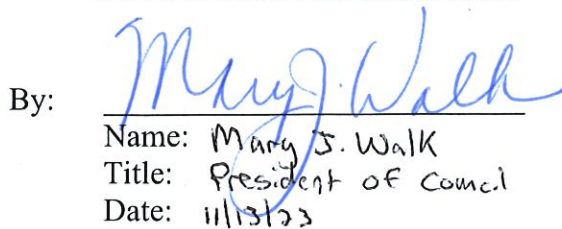 By: Mary J. Walk
Name: Mary J. Walk
Title: President of Council
Date: 11/13/23